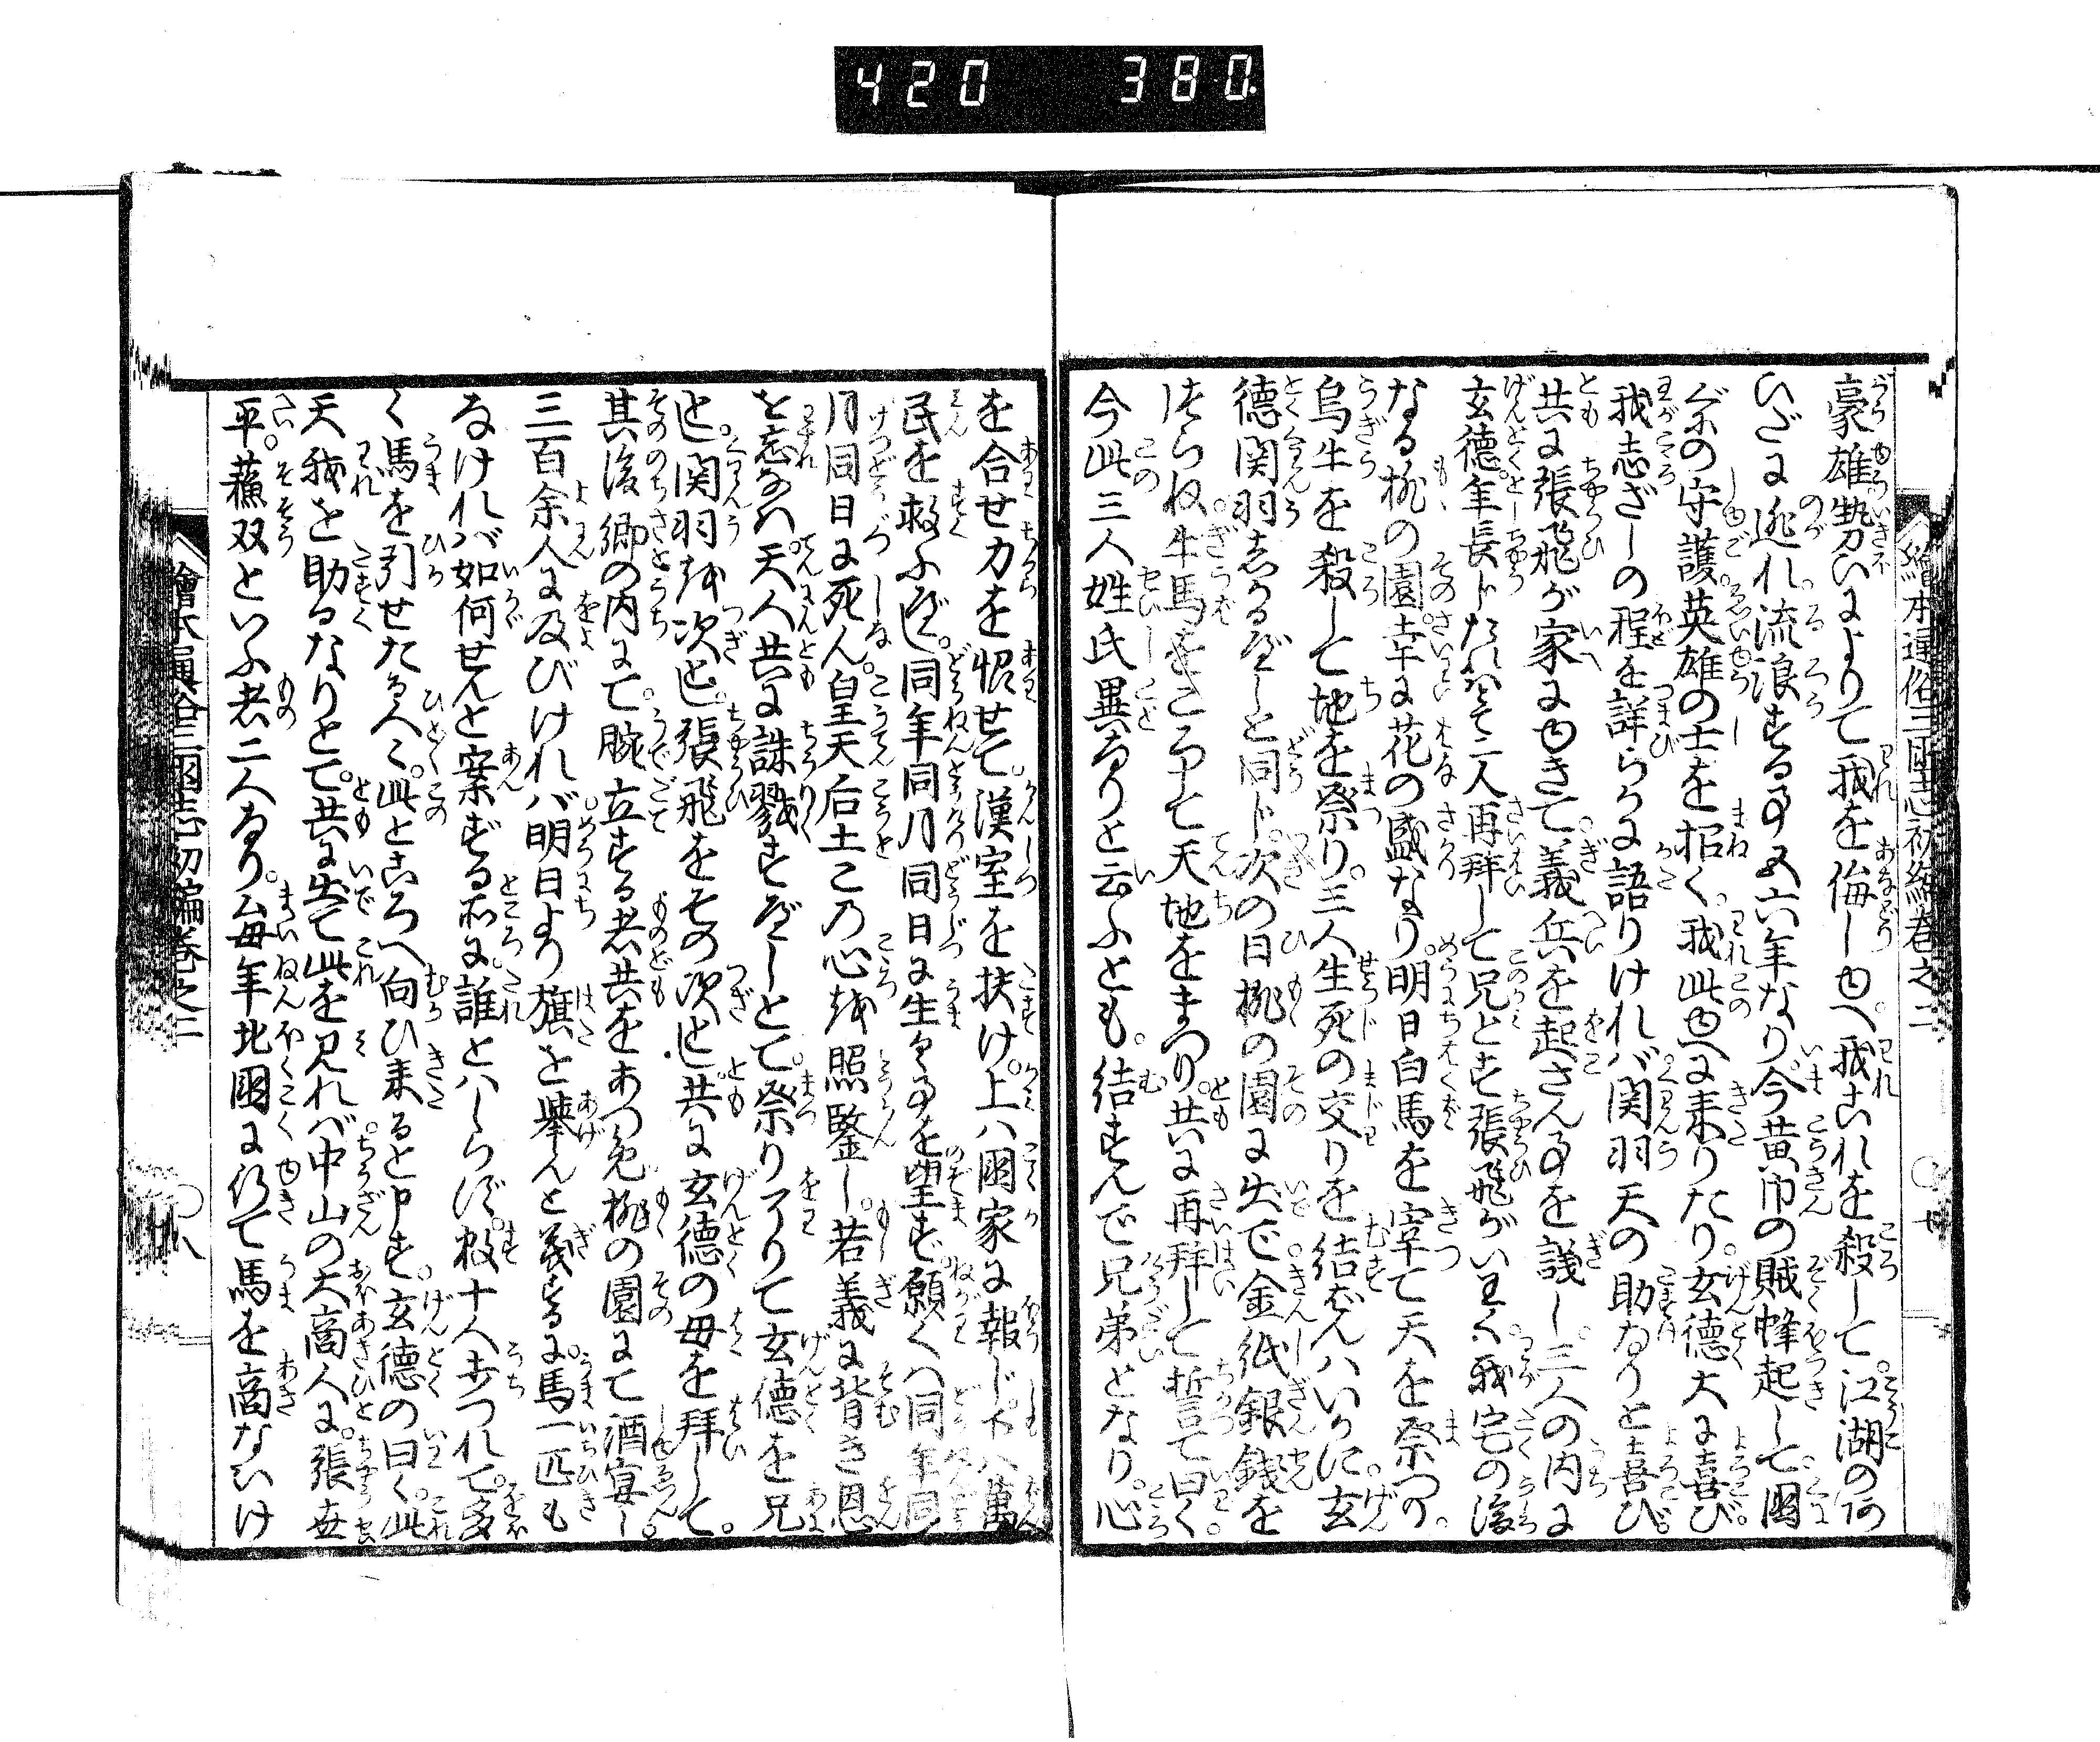 420 380
繪本通俗三國志初編巻之二 ○廿
豪雄勢ひによりて我を侮しゆへ。我これを殺して。江湖のあ
ひだに逃れ。流浪する事五六年なり。今黄巾の賊蜂起して。國
〲の守護。英雄の士を招く。我此ゆへに来りたり。玄徳大に喜び。
我志ざしの程を詳らかに語りければ。関羽天の助なりと喜び。
共に張飛が家にゆきて。義兵を起さん事を議し。三人の内に
玄徳年長じたればとて。二人再拜して兄とす。張飛がいはく。我宅の後
なる桃の園。幸に花の盛なり。明日白馬を宰て天を祭つり。
烏牛を殺して地を祭り。三人生死の交りを結ばんハいかに。玄
徳関羽しかるべしと同じ。次の日桃の園に出で。金紙銀錢を
つらね。牛馬をころして天地をまつり。共に再拜して誓て曰く。
今此三人姓氏異なりと云ふとも。結すんで兄弟となり。心
を合せ力を恊せて。漢室を扶け。上ハ國家に報じ。下ハ萬
民を救ふべし。同年同月同日に生るゝ事を望ず。願くハ同年同
月同日に死ん。皇天后土この心を照鑒し。若義に背き恩
を忘なハ。天人共に誅戮すべしとて。祭り了りて玄徳を兄
とし。関羽を次とし。張飛をその次とし。共に玄徳の母を拜して。
其後郷の内にて。腕立する者共をあつめ。桃の園にて酒宴し。
三百余人に及びければ。明日より旗を擧んと義するに。馬一匹も
なければ如何せんと案ずる所に。誰とハしらず。数十人打つれて。多
く馬を引せたる人々。此ところへ向ひ来ると申す。玄徳の曰く。此
天我を助るなりとて。共に出て此を見れば。中山の大商人に。張世
平。蘇双といふ者二人なり。毎年北國に行て馬を商なひけ
繪本通俗三國志初編巻之二 ○廿八